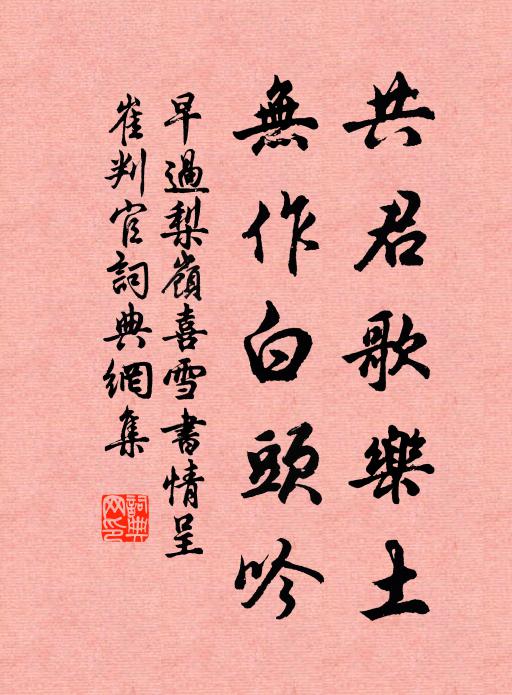 共君歌樂土
無作白頭吟
早過梨嶺喜雪書情呈
崔判官詞典網集
詞典
网印